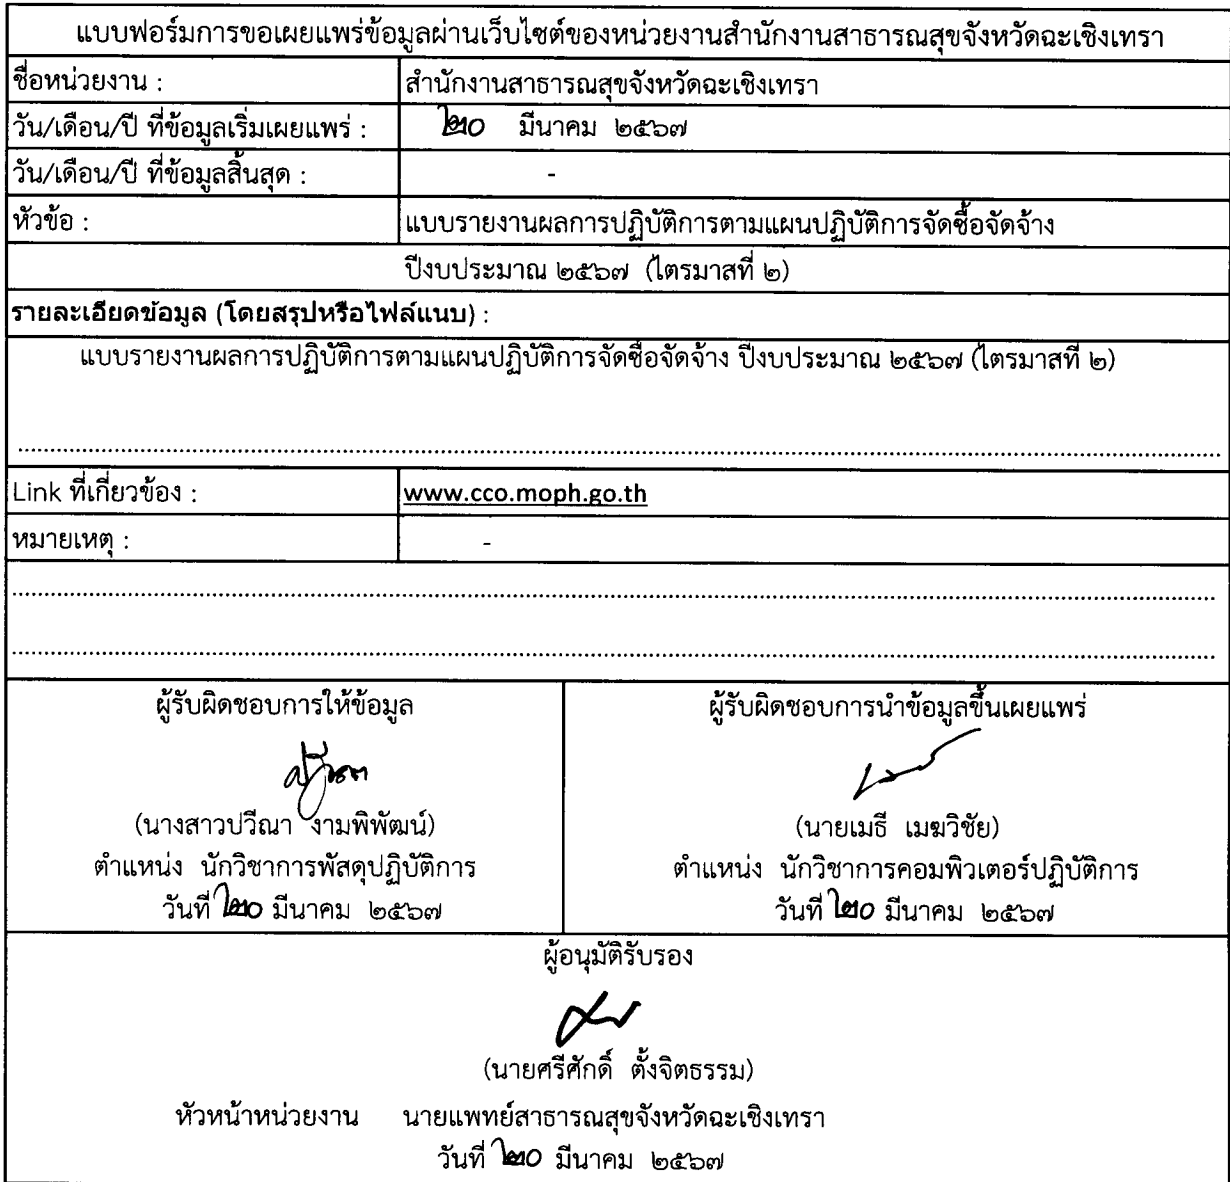 แบบฟอร์มการขอเผยแพร่ข้อมูลผ่านเว็บไซต์ของหน่วยงานสำนักงานสาธารณสุขจังหวัดฉะเชิงเทรา
ชื่อหน่วยงาน : สำนักงานสาธารณสุขจังหวัดฉะเชิงเทรา
วัน/เดือน/ปี ที่ข้อมูลเริ่มเผยแพร่ : ๒๐ มีนาคม ๒๕๖๗
วัน/เดือน/ปี ที่ข้อมูลสิ้นสุด : -
หัวข้อ : แบบรายงานผลการปฏิบัติการตามแผนปฏิบัติการจัดซื้อจัดจ้าง
ปีงบประมาณ ๒๕๖๗ (ไตรมาสที่ ๒)
รายละเอียดข้อมูล (โดยสรุปหรือไฟล์แนบ) :
แบบรายงานผลการปฏิบัติการตามแผนปฏิบัติการจัดซื้อจัดจ้าง ปีงบประมาณ ๒๕๖๗ (ไตรมาสที่ ๒)
Link ที่เกี่ยวข้อง : www.cco.moph.go.th
หมายเหตุ : -
ผู้รับผิดชอบการให้ข้อมูล
(นางสาวปวีณา งามพิพัฒน์)
ตำแหน่ง นักวิชาการพัสดุปฏิบัติการ
วันที่ ๒๐ มีนาคม ๒๕๖๗
ผู้รับผิดชอบการนำข้อมูลขึ้นเผยแพร่
(นายเมธี เมฆวิชัย)
ตำแหน่ง นักวิชาการคอมพิวเตอร์ปฏิบัติการ
วันที่ ๒๐ มีนาคม ๒๕๖๗
ผู้อนุมัติรับรอง
(นายศรีศักดิ์ ตั้งจิตธรรม)
หัวหน้าหน่วยงาน นายแพทย์สาธารณสุขจังหวัดฉะเชิงเทรา
วันที่ ๒๐ มีนาคม ๒๕๖๗